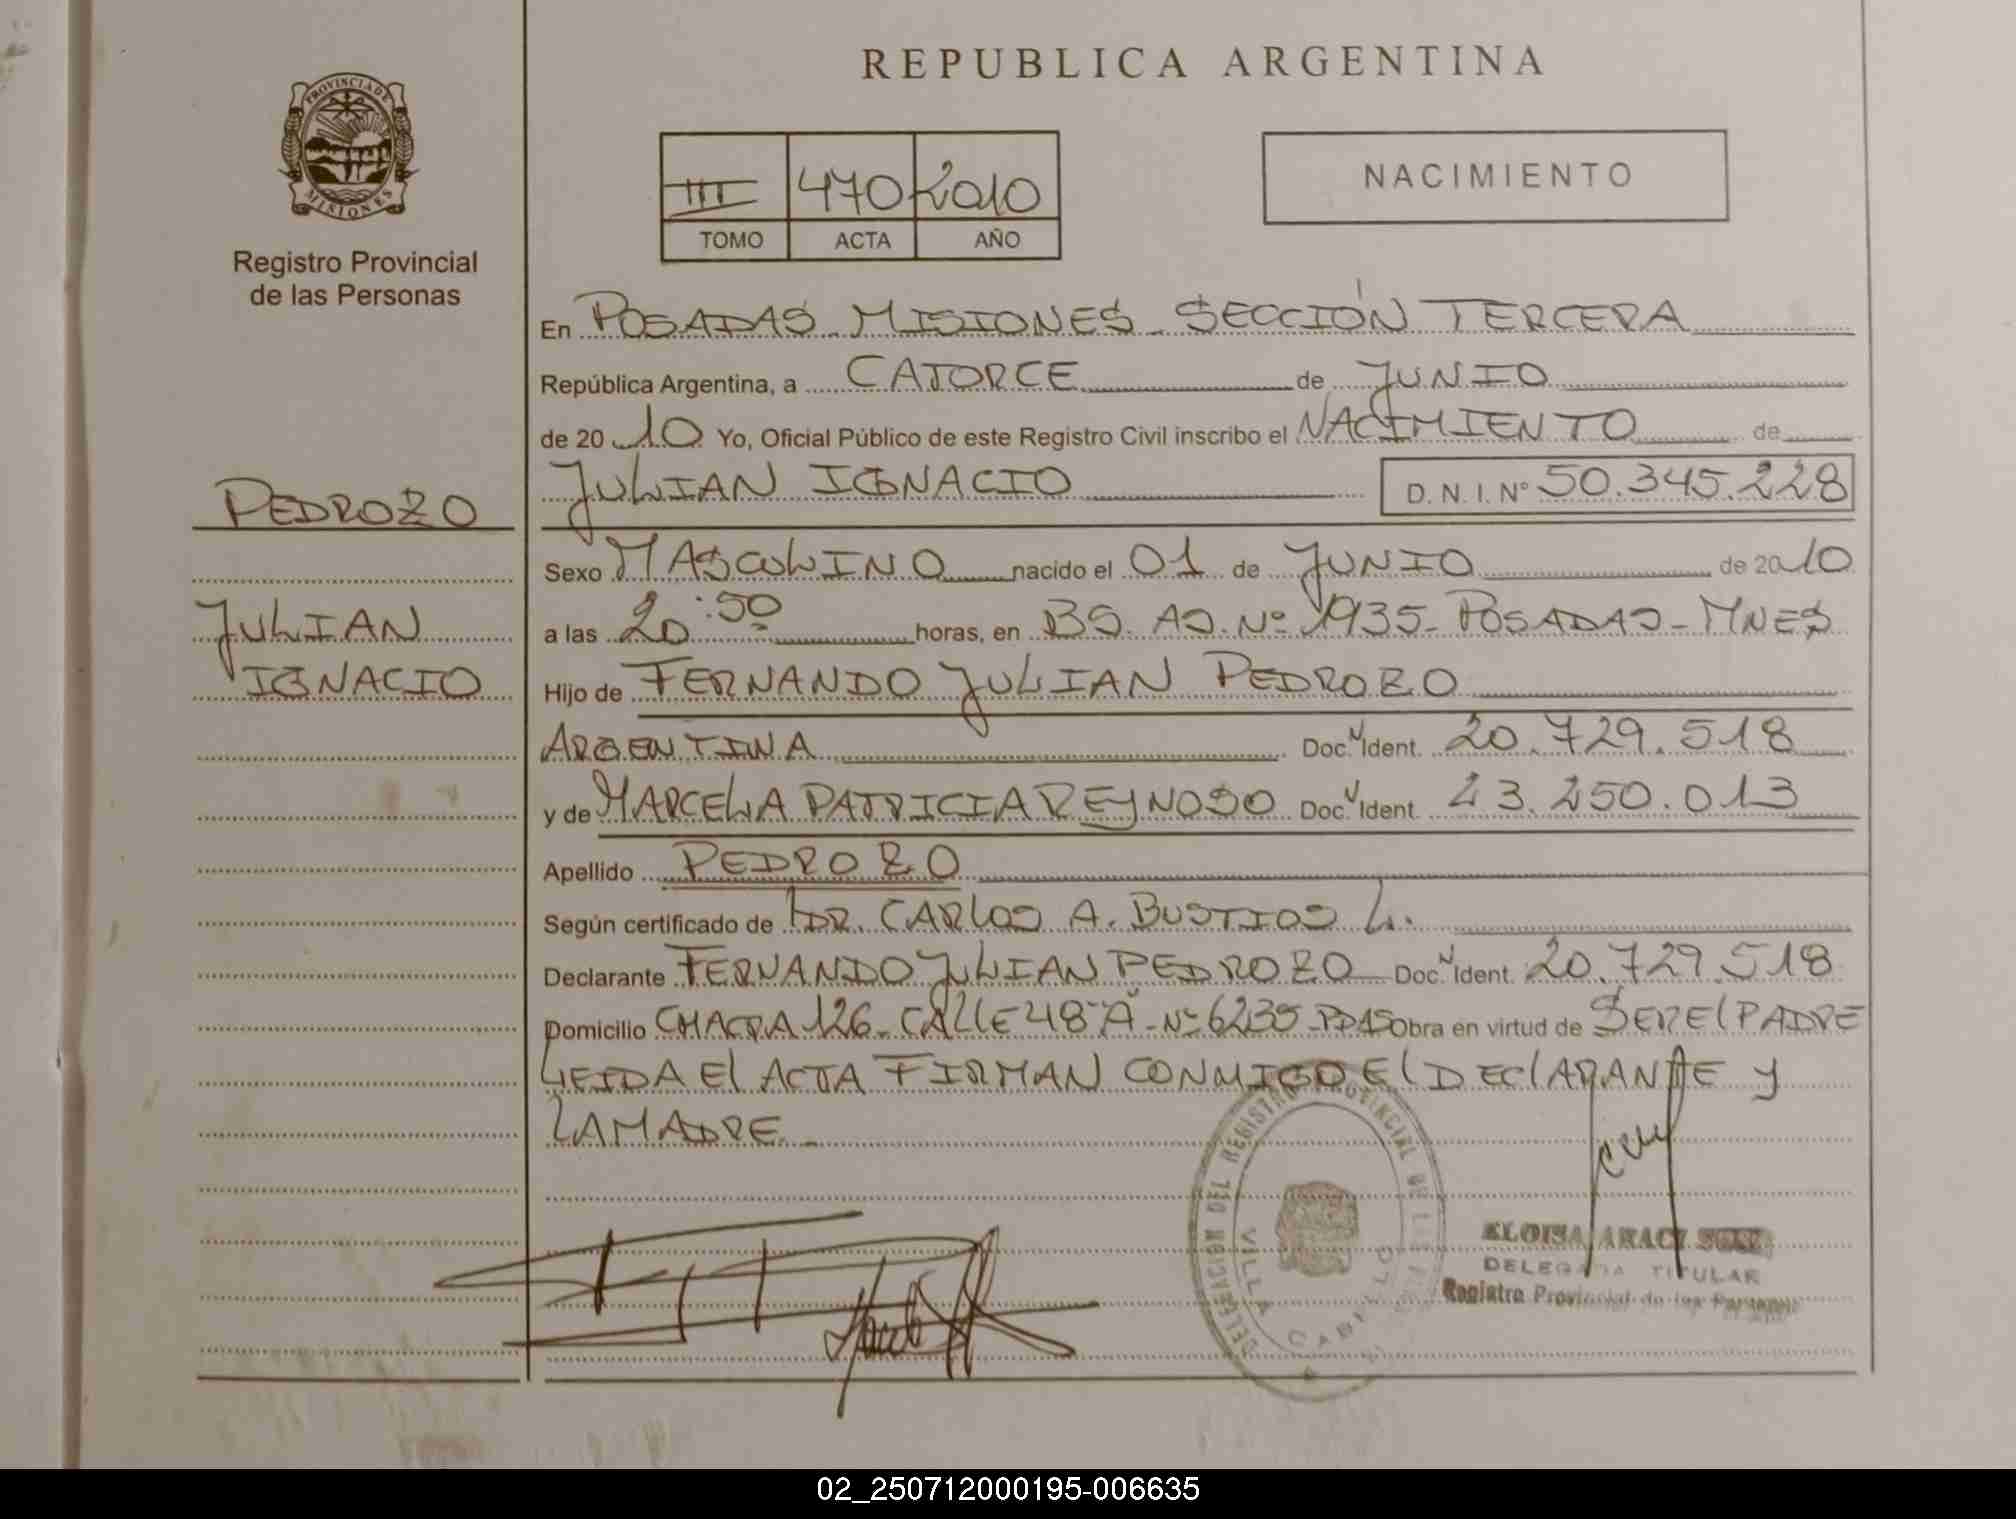 REPUBLICA ARGENTINA
PROVINCIA DE
MISIONES
Registro Provincial
de las Personas
III 470 2010
TOMO ACTA AÑO
NACIMIENTO
En POSADAS MISIONES - SECCIÓN TERCERA
República Argentina, a CATORCE de JUNIO
de 2010 Yo, Oficial Público de este Registro Civil inscribo el NACIMIENTO de
JULIAN IGNACIO D. N. I. Nº 50.345.228
PEDROZO
JULIAN
IGNACIO
Sexo MASCULINO nacido el 01 de JUNIO de 2010
a las 20:50 horas, en BS. AS. Nº 1935 - POSADAS - MNES
Hijo de FERNANDO JULIAN PEDROZO
ARGENTINA Doc. Ident. 20.729.518
y de MARCELA PATRICIA REYNOSO Doc. Ident. 23.250.013
Apellido PEDROZO
Según certificado de DR. CARLOS A. BUSTIOS L.
Declarante FERNANDO JULIAN PEDROZO Doc. Ident. 20.729.518
Domicilio CHACRA 126 - CALLE 48 "A" - Nº 6235 - PDAS Obra en virtud de SER El PADRE
LEIDA El ACTA FIRMAN CONMIGO El DEClARANTE y
LA MADRE -
DELEGACION DEL REGISTRO PROVINCIAL DE
VILLA CABELLO
ELOISA ARACY
DELEGADA TITULAR
Registro Provincial de las Personas
02_250712000195-006635